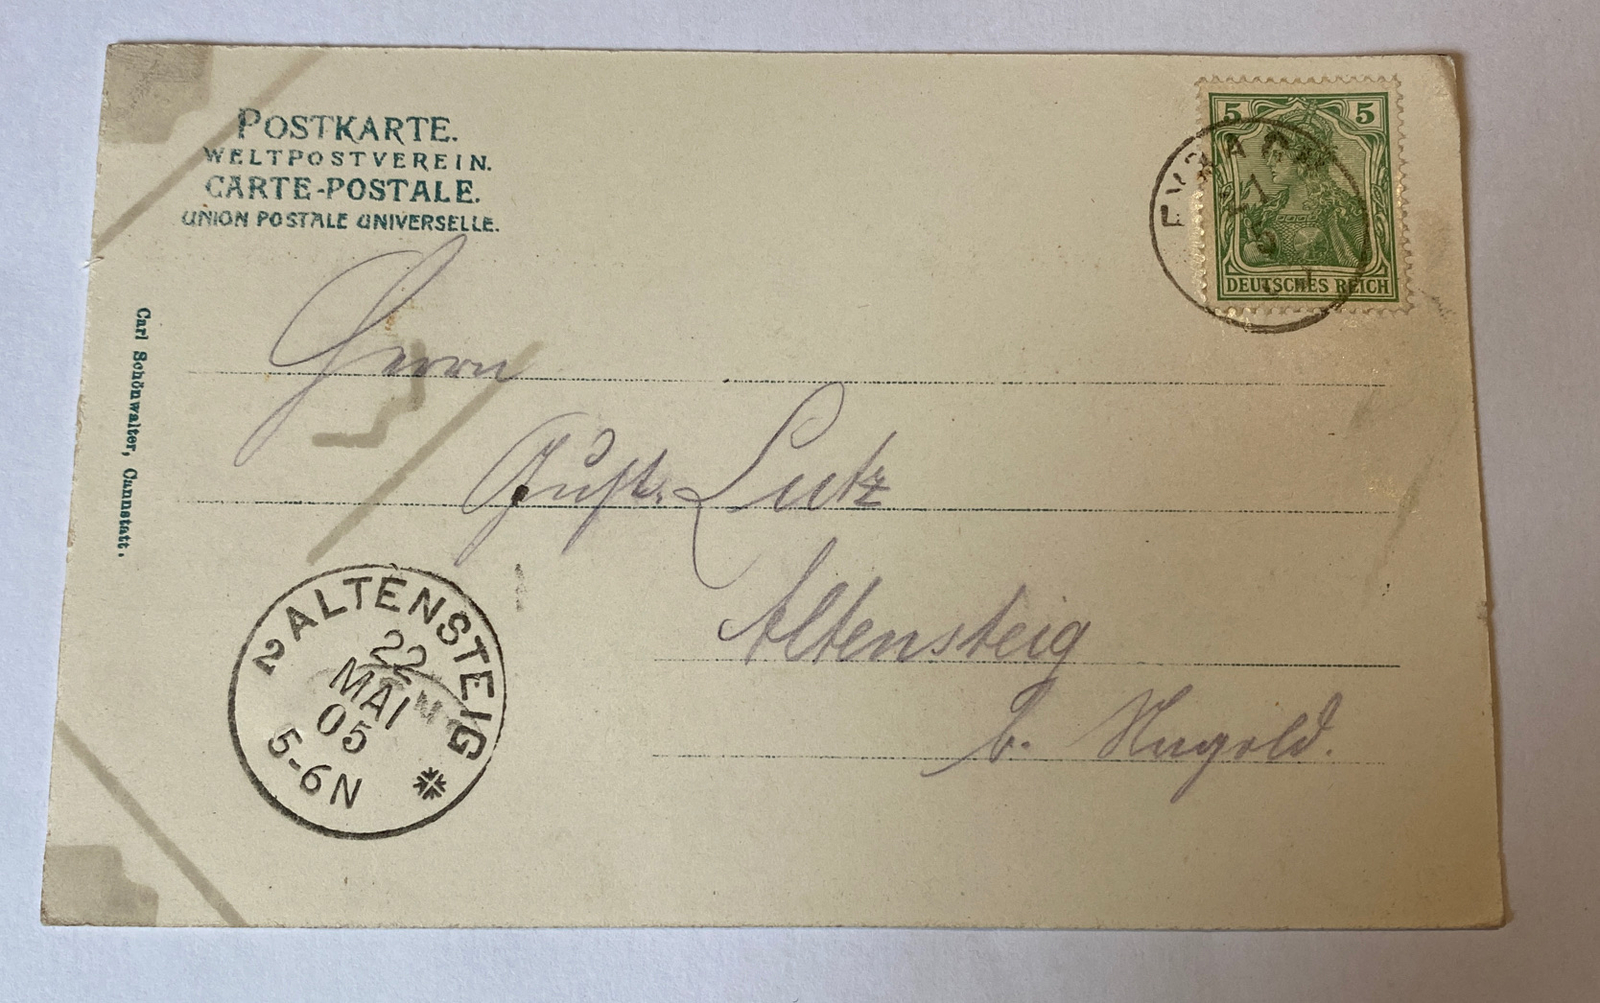 POSTKARTE.
WELTPOSTVEREIN.
CARTE-POSTALE.
UNION POSTALE UNIVERSELLE.
5 5
DEUTSCHES REICH
Carl Schönwalter, Cannstatt.
Herrn
Gust. Lutz
Altensteig
b. Nagold.
2 ALTENSTEIG
22
MAI
05
5-6N